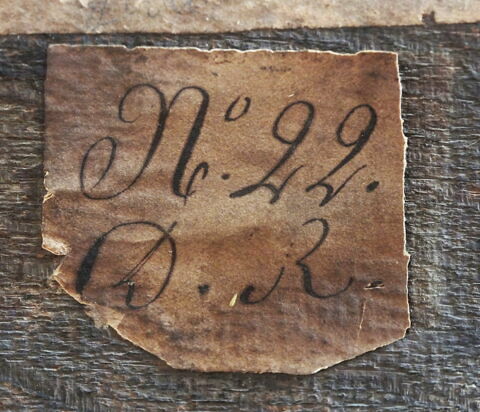 Nº. 22.
D. R.